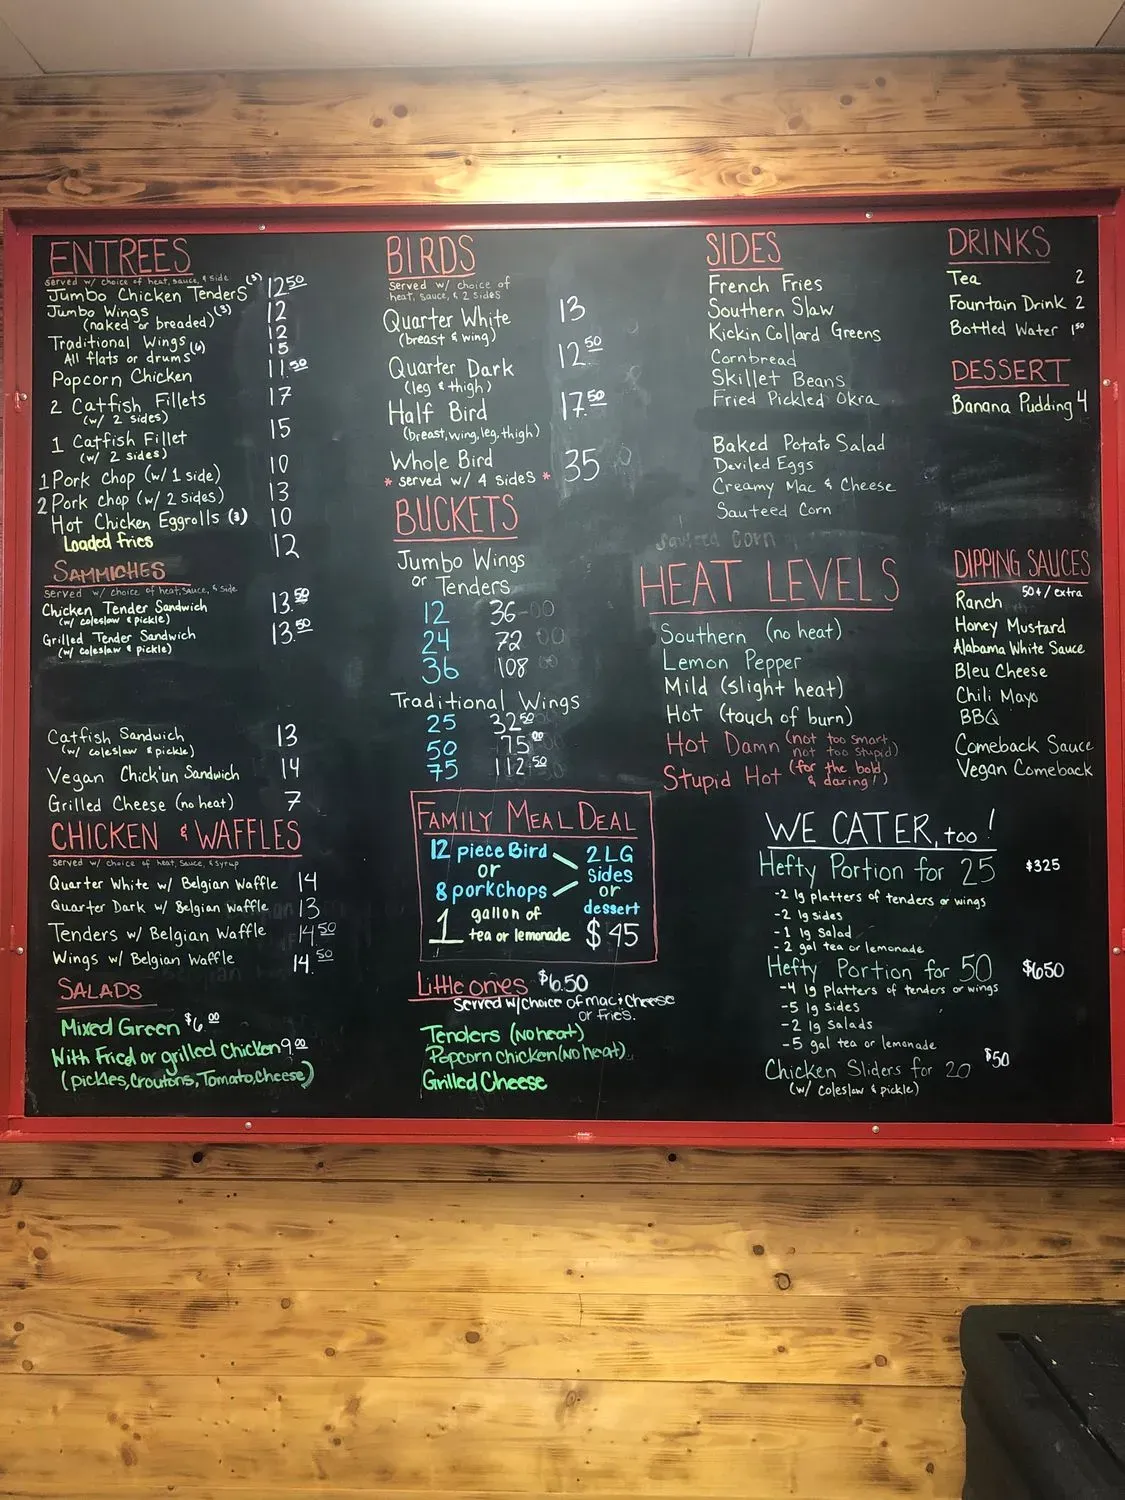 ENTREES
Served w/ choice of heat, sauce, & side
Jumbo Chicken Tenders (3) 12 50
Jumbo Wings (3) 12
(naked or breaded)
Traditional Wings (6) 12
All flats or drums 15
Popcorn Chicken 11.50
2 Catfish Fillets 17
(w/ 2 sides)
1 Catfish Fillet 15
(w/ 2 sides)
1 Pork chop (w/ 1 side) 10
2 Pork chop (w/ 2 sides) 13
Hot Chicken Eggrolls (3) 10
Loaded fries 12
SAMMICHES
Served w/ choice of heat, sauce, & side
Chicken Tender Sandwich 13.50
(w/ coleslaw & pickle)
Grilled Tender Sandwich 13.50
(w/ coleslaw & pickle)
Catfish Sandwich 13
(w/ coleslaw & pickle)
Vegan Chick'un Sandwich 14
Grilled Cheese (no heat) 7
CHICKEN & WAFFLES
Served w/ choice of heat, sauce, & syrup
Quarter White w/ Belgian Waffle 14
Quarter Dark w/ Belgian Waffle 13
Tenders w/ Belgian Waffle 14.50
Wings w/ Belgian Waffle 14.50
SALADS
Mixed Green $6.00
With Fried or grilled Chicken 9.00
(pickles, Croutons, Tomato, Cheese)
BIRDS
Served w/ choice of
heat, sauce, & 2 sides
Quarter White 13
(breast & wing)
Quarter Dark 12.50
(leg & thigh)
Half Bird 17.50
(breast, wing, leg, thigh)
Whole Bird 35
* served w/ 4 sides *
BUCKETS
Jumbo Wings
or Tenders
12 36
24 72
36 108
Traditional Wings
25 32.50
50 75.00
75 112.50
FAMILY MEAL DEAL
12 piece Bird
or
8 porkchops
2 LG
sides
or
dessert
1 gallon of
tea or lemonade
$45
Little ones $6.50
Served w/choice of mac & cheese
or fries.
Tenders (No heat)
Popcorn chicken (NO heat)
Grilled Cheese
SIDES
French Fries
Southern Slaw
Kickin Collard Greens
Cornbread
Skillet Beans
Fried Pickled Okra
Baked Potato Salad
Deviled Eggs
Creamy Mac & Cheese
Sauteed Corn
HEAT LEVELS
Southern (no heat)
Lemon Pepper
Mild (slight heat)
Hot (touch of burn)
Hot Damn (not too smart,
not too stupid)
Stupid Hot (for the bold
& daring!)
WE CATER, too!
Hefty Portion for 25 $325
-2 lg platters of tenders or wings
-2 lg sides
-1 lg salad
-2 gal tea or lemonade
Hefty Portion for 50 $650
-4 lg platters of tenders or wings
-5 lg sides
-2 lg salads
-5 gal tea or lemonade
Chicken Sliders for 20 $50
(w/ coleslaw & pickle)
DRINKS
Tea 2
Fountain Drink 2
Bottled Water 1 50
DESSERT
Banana Pudding 4
DIPPING SAUCES
50¢/extra
Ranch
Honey Mustard
Alabama White Sauce
Bleu Cheese
Chili Mayo
BBQ
Comeback Sauce
Vegan Comeback